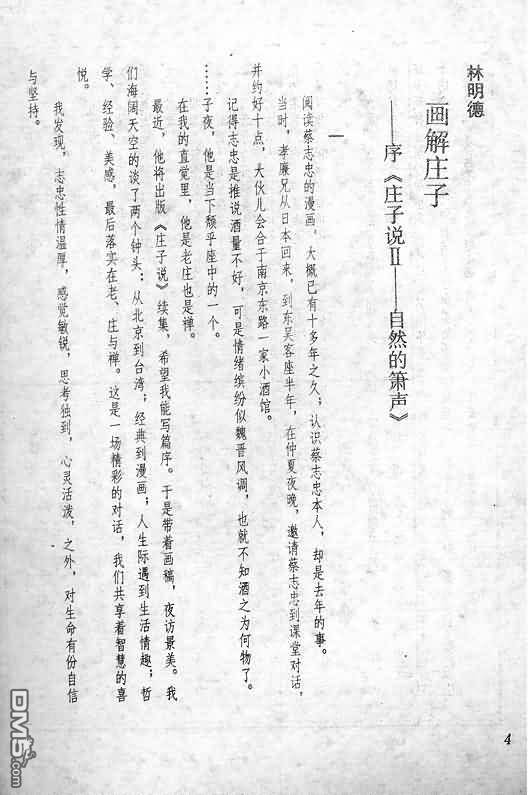 林明德
画解庄子
——序《庄子说Ⅱ——自然的箫声》
一
阅读蔡志忠的漫画，大概已有十多年之久；认识蔡志忠本人，却是去年的事。
当时，李廉兄从日本回来，到东吴客座半年，在仲夏夜晚，邀请蔡志忠到课堂对话，
并约好十点，大伙儿会合于南京东路一家小酒馆。
记得志忠是推说酒量不好，可是情绪缤纷似魏晋风调，也就不知酒之为何物了。
……
子夜，他是当下颓乎座中的一个。
在我的直觉里，他是老庄也是禅。
最近，他将出版《庄子说》续集，希望我能写篇序。于是带着画稿，夜访景美。我
们海阔天空的谈了两个钟头：从北京到台湾；经典到漫画；人生际遇到生活情趣；哲
学、经验、美感，最后落实在老、庄与禅。这是一场精彩的对话，我们共享着智慧的喜
悦。
我发现，志忠性情温厚，感觉敏锐，思考独到，心灵活泼，之外，对生命有份自信
与坚持。
4
DM5.com